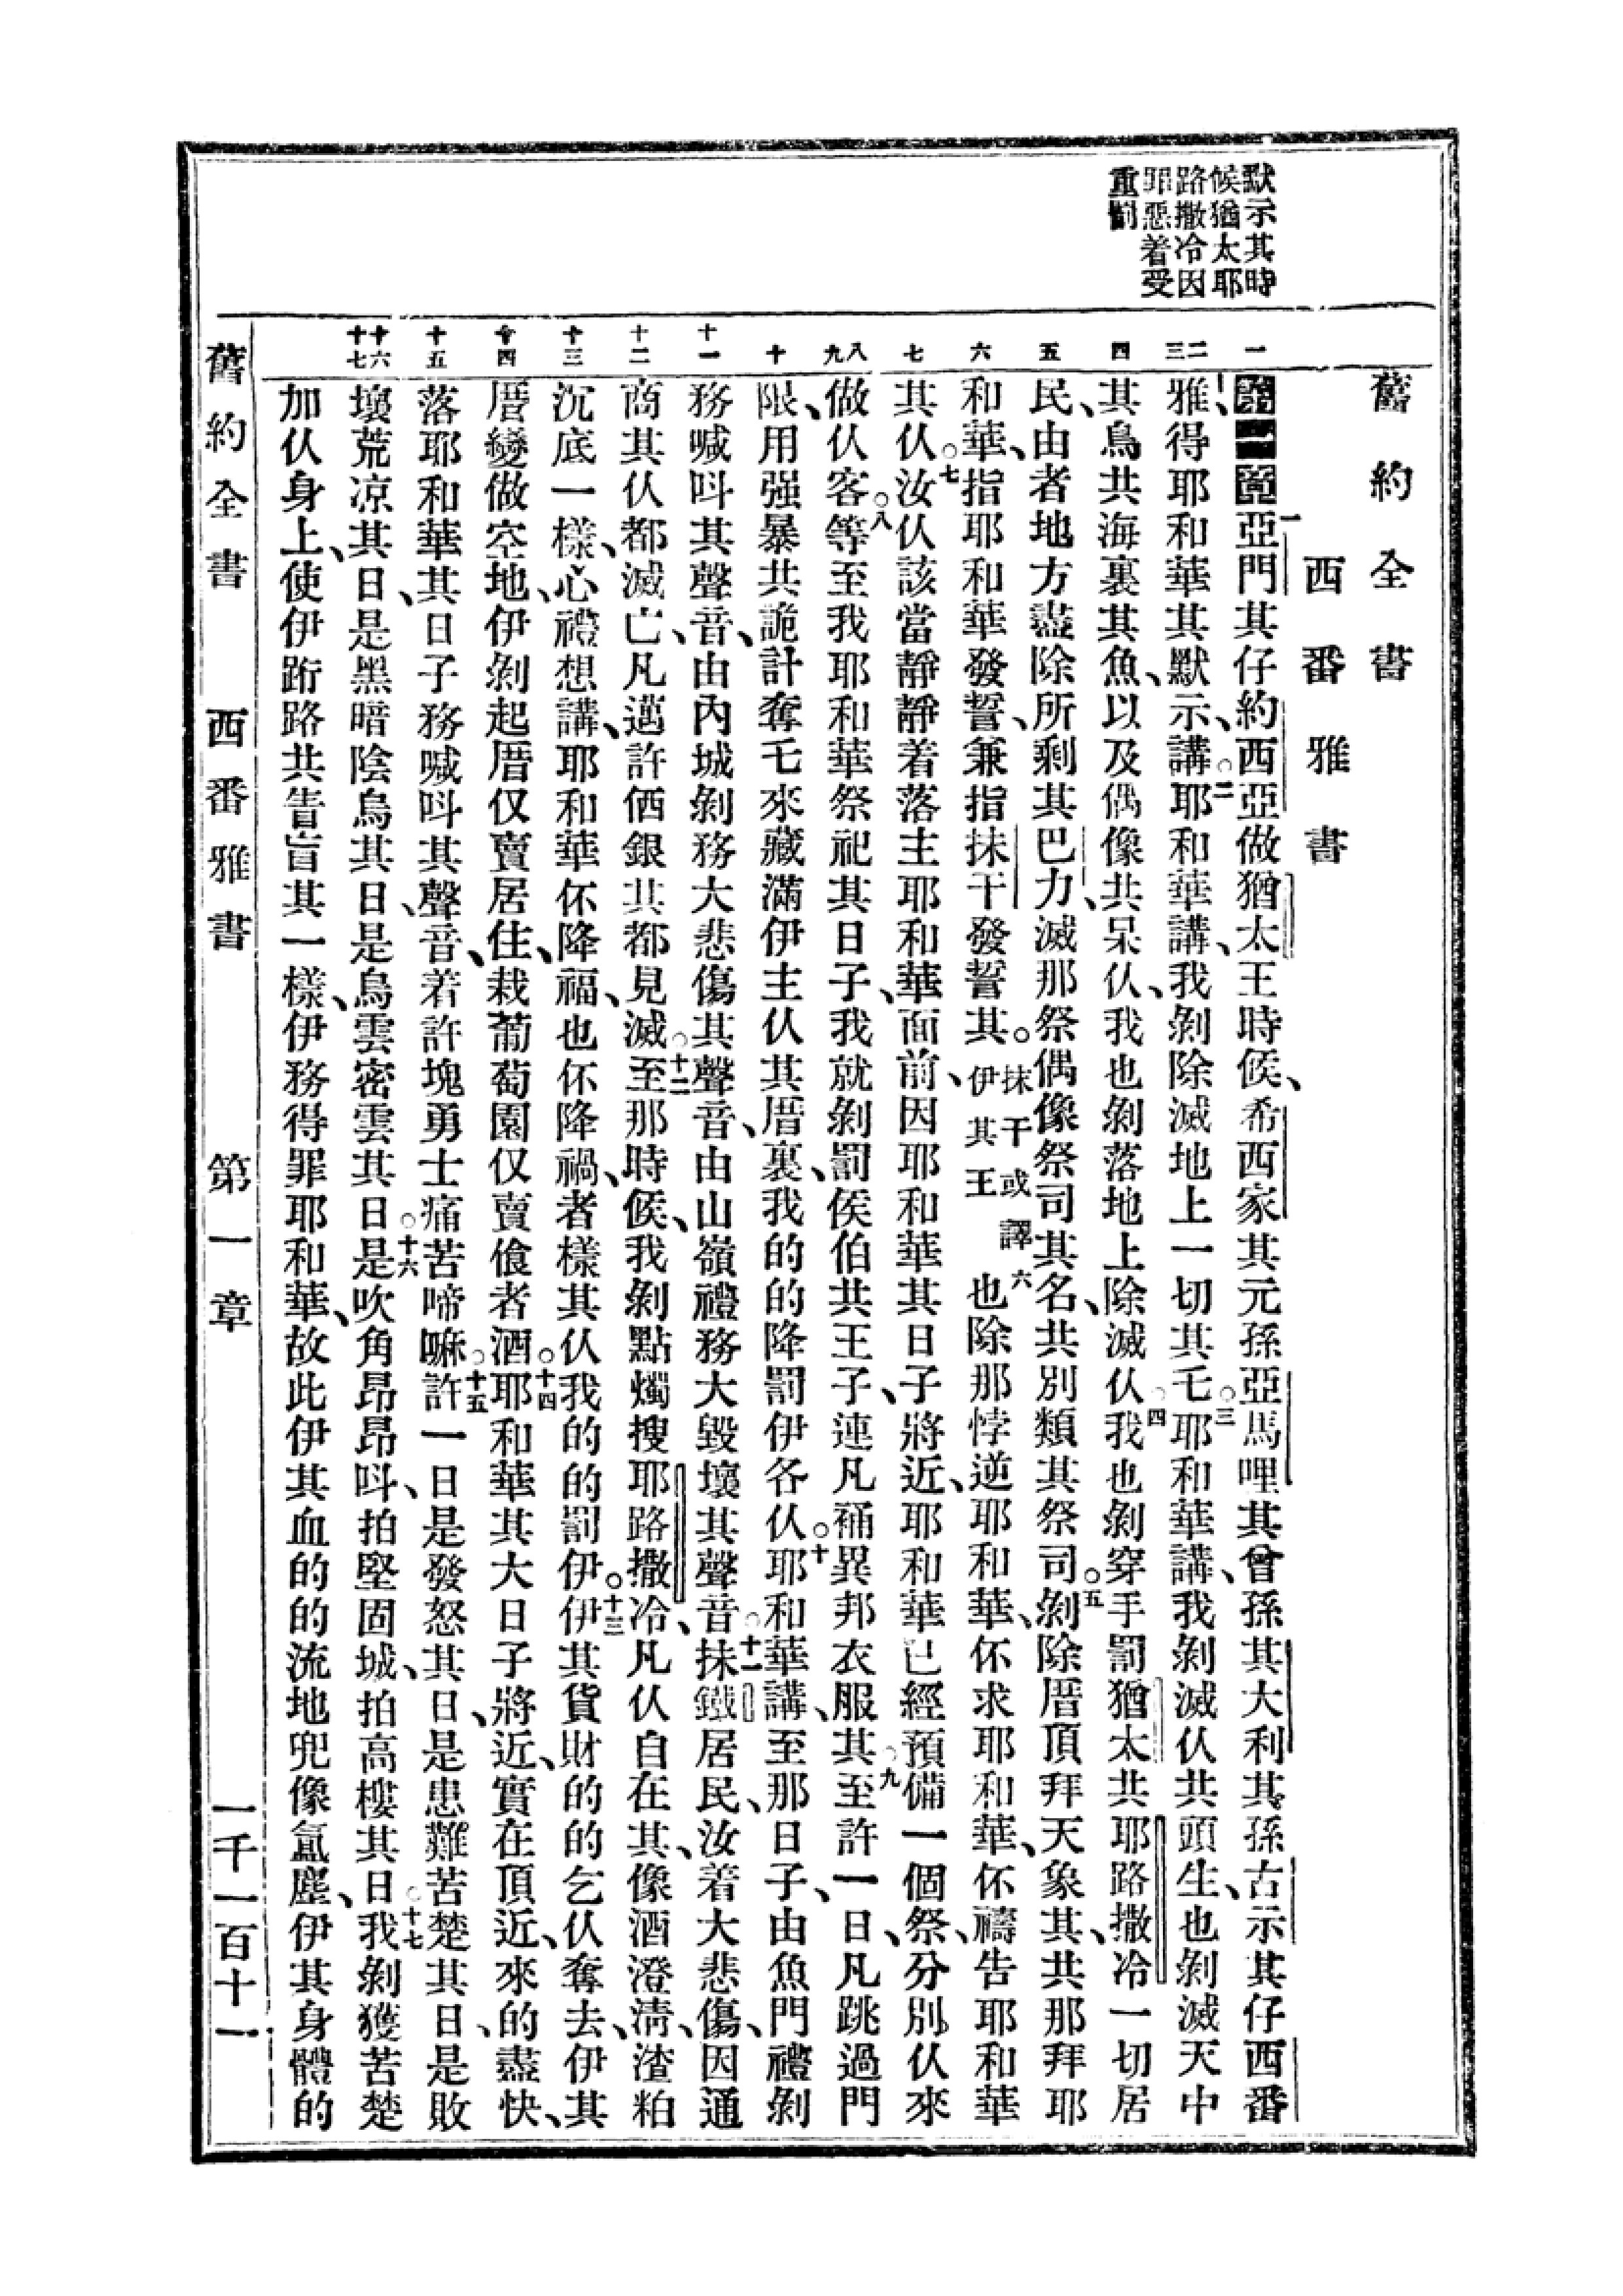 舊約全書
西番雅書
默示其時
候猶太耶
路撒冷因
罪惡着受
重罰
一
二
三
四
五
六
七
八
九
十
十一
十二
十三
十四
十五
十六
十七
第一章一亞門其仔約西亞做猶太王時候、希西家其元孫亞馬哩其曾孫其大利其孫古示其仔西番
雅、得耶和華其默示、講。○二耶和華講、我剝除滅地上一切其乇○三耶和華講、我剝滅仈共頭生、也剝滅天中
其鳥共海裏其魚、以及偶像共呆仈、我也剝落地上除滅仈○四我也剝穿手罰猶太共耶路撒冷一切居
民、由者地方盡除所剩其巴力、滅那祭偶像祭司其名、共別類其祭司○五剝除厝頂拜天象其、共那拜耶
和華、指耶和華發誓、兼指抹干發誓其。抹干或譯伊其王六也除那悖逆耶和華、伓求耶和華、伓禱告耶和華
其仈○七汝仈該當靜靜着落主耶和華面前、因耶和華其日子將近、耶和華已經預備一個祭、分別仈來
做仈客○八等至我耶和華祭祀其日子、我就剝罰侯伯共王子、連凡䘄異邦衣服其○九至許一日、凡跳過門
限、用强暴共詭計奪乇來藏滿伊主仈其厝裏、我的的降罰伊各仈○十耶和華講、至那日子、由魚門禮剝
務喊呌其聲音、由內城剝務大悲傷其聲音、由山嶺禮務大毀壞其聲音○十一抹鐵居民、汝着大悲傷、因通
商其仈都滅亡、凡邁許価銀其都見滅○十二至那時候、我剝點燭搜耶路撒冷、凡仈自在其、像酒澄淸、渣粕
沉底一樣、心禮想講、耶和華伓降福、也伓降禍、者樣其仈我的的罰伊○十三伊其貨財的的乞仈奪去、伊其
厝變做空地、伊剝起厝仅賣居住、栽葡萄園仅賣飡者酒○十四耶和華其大日子將近、實在頂近、來的盡快、
落耶和華其日子務喊呌其聲音、着許塊勇士痛苦啼嘛○十五許一日是發怒其日、是患難苦楚其日、是敗
壞荒凉其日、是黑暗陰烏其日、是烏雲密雲其日○十六是吹角昂昂呌、拍堅固城、拍高樓其日○十七我剝獲苦楚
加仈身上、使伊跲路共眚盲其一樣、伊務得罪耶和華、故此伊其血的的流地兜像𡎺塵、伊其身體的
舊約全書 西番雅書 第一章 一千一百十一